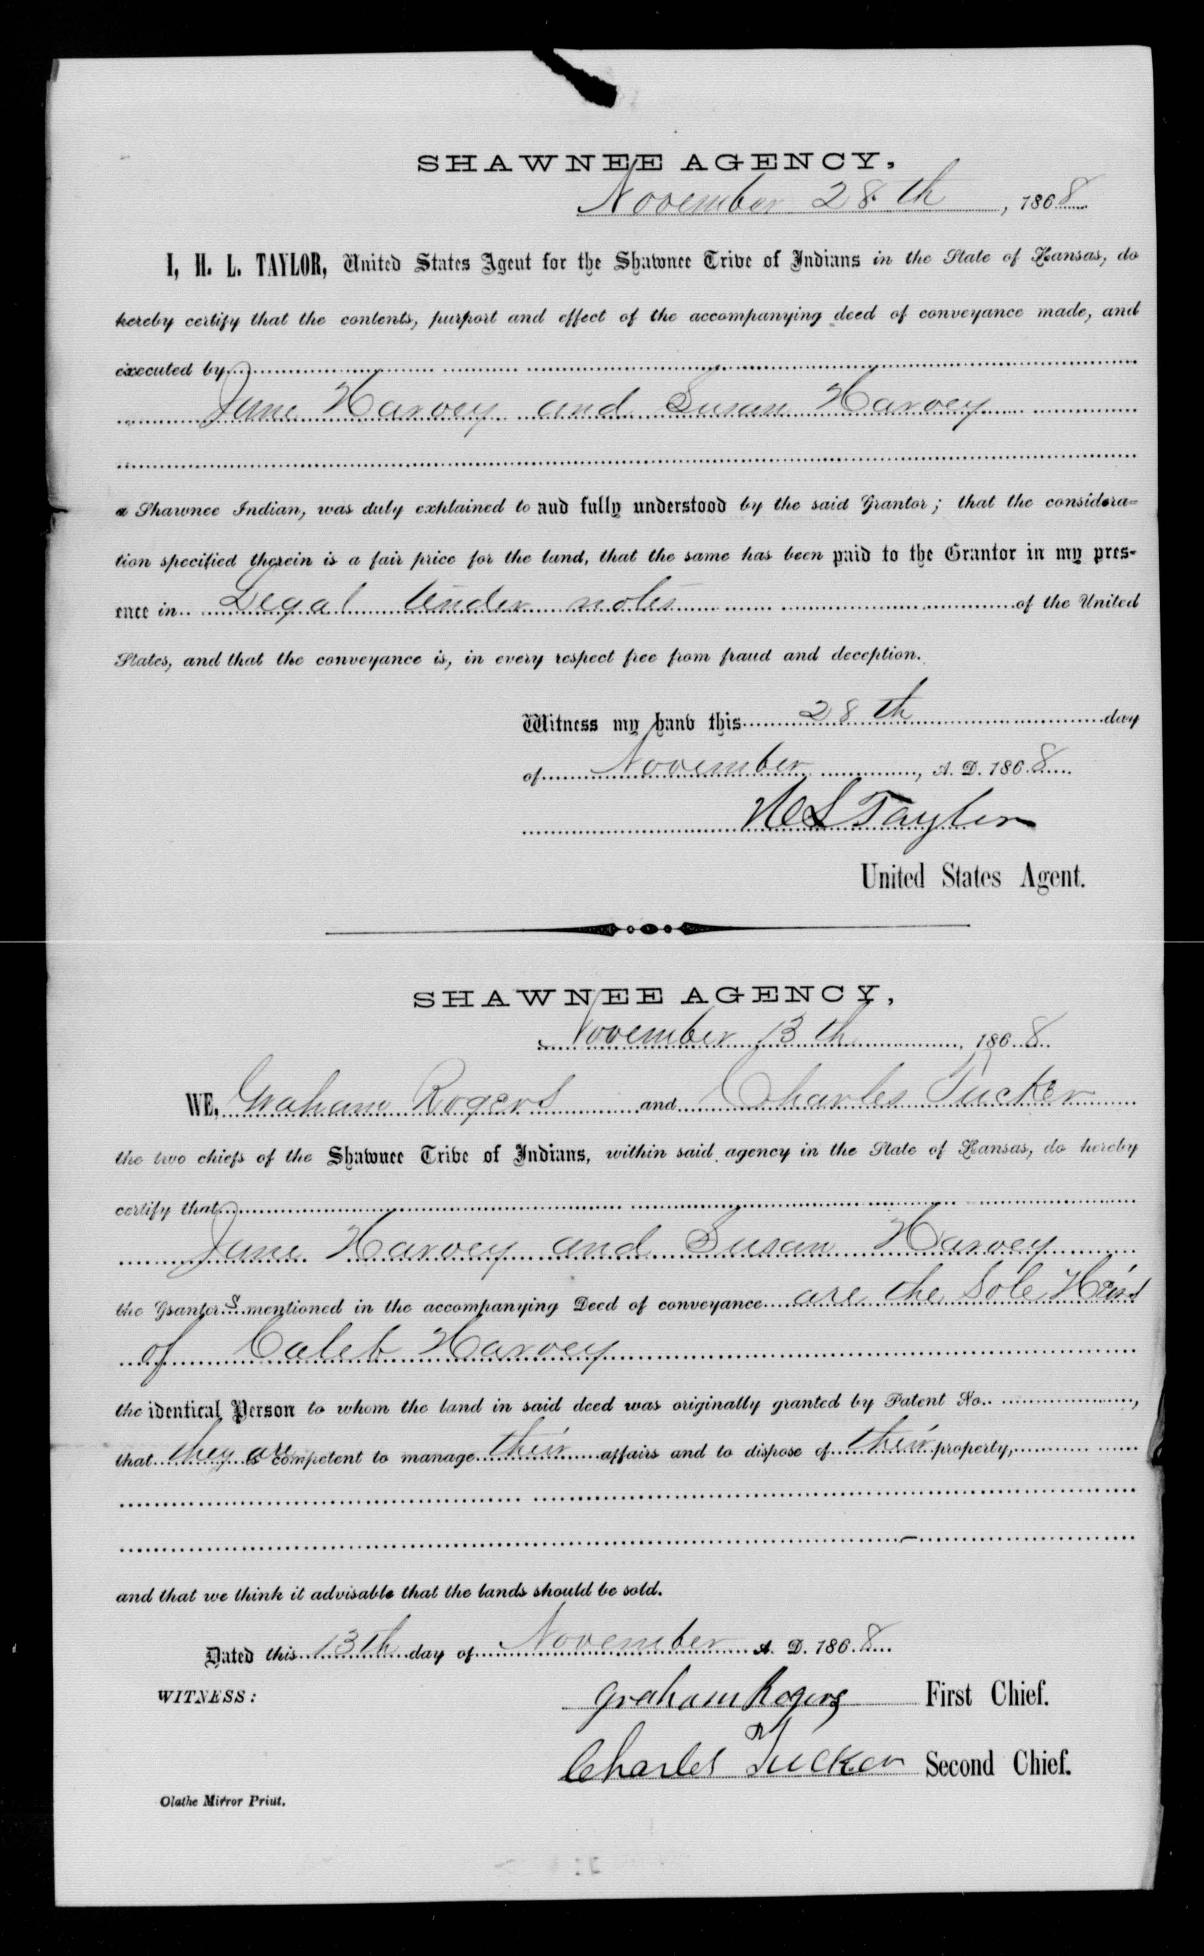 SHAWNEE AGENCY,
November 28th, 1868
I, H. L. TAYLOR, United States Agent for the Shawnee Trive of Indians in the State of Kansas, do
hereby certify that the contents, purport and effect of the accompanying deed of conveyance made, and
executed by
Jane Harvey and Susan Harvey
a Shawnee Indian, was duly exhlained to and fully understood by the said Grantor; that the considera=
tion specified therein is a fair price for the land, that the same has been paid to the Grantor in my pres-
ence in Legal tender notes of the United
States, and that the conveyance is, in every respect free from fraud and deception.
Witness my hand this 28th day
of November, A. D. 1868
H L Taylor
United States Agent.
SHAWNEE AGENCY,
November 13th, 1868
WE, Graham Rogers and Charles Tucker
the two chiefs of the Shawnee Trive of Indians, within said agency in the State of Kansas, do hereby
certify that
Jane Harvey and Susan Harvey
the Grantors mentioned in the accompanying Deed of conveyance are the Sole Heirs
of Caleb Harvey
the identical Person to whom the land in said deed was originally granted by Patent No. ,
that they are is competent to manage their affairs and to dispose of their property,
and that we think it advisable that the lands should be sold.
Dated this 13th day of November A. D. 1868
WITNESS:
Graham Rogers First Chief.
Charles Tucker Second Chief.
Olathe Mirror Print.